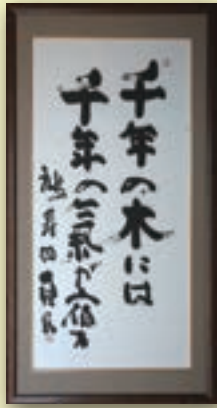 千年の木には
千年の氣が宿る